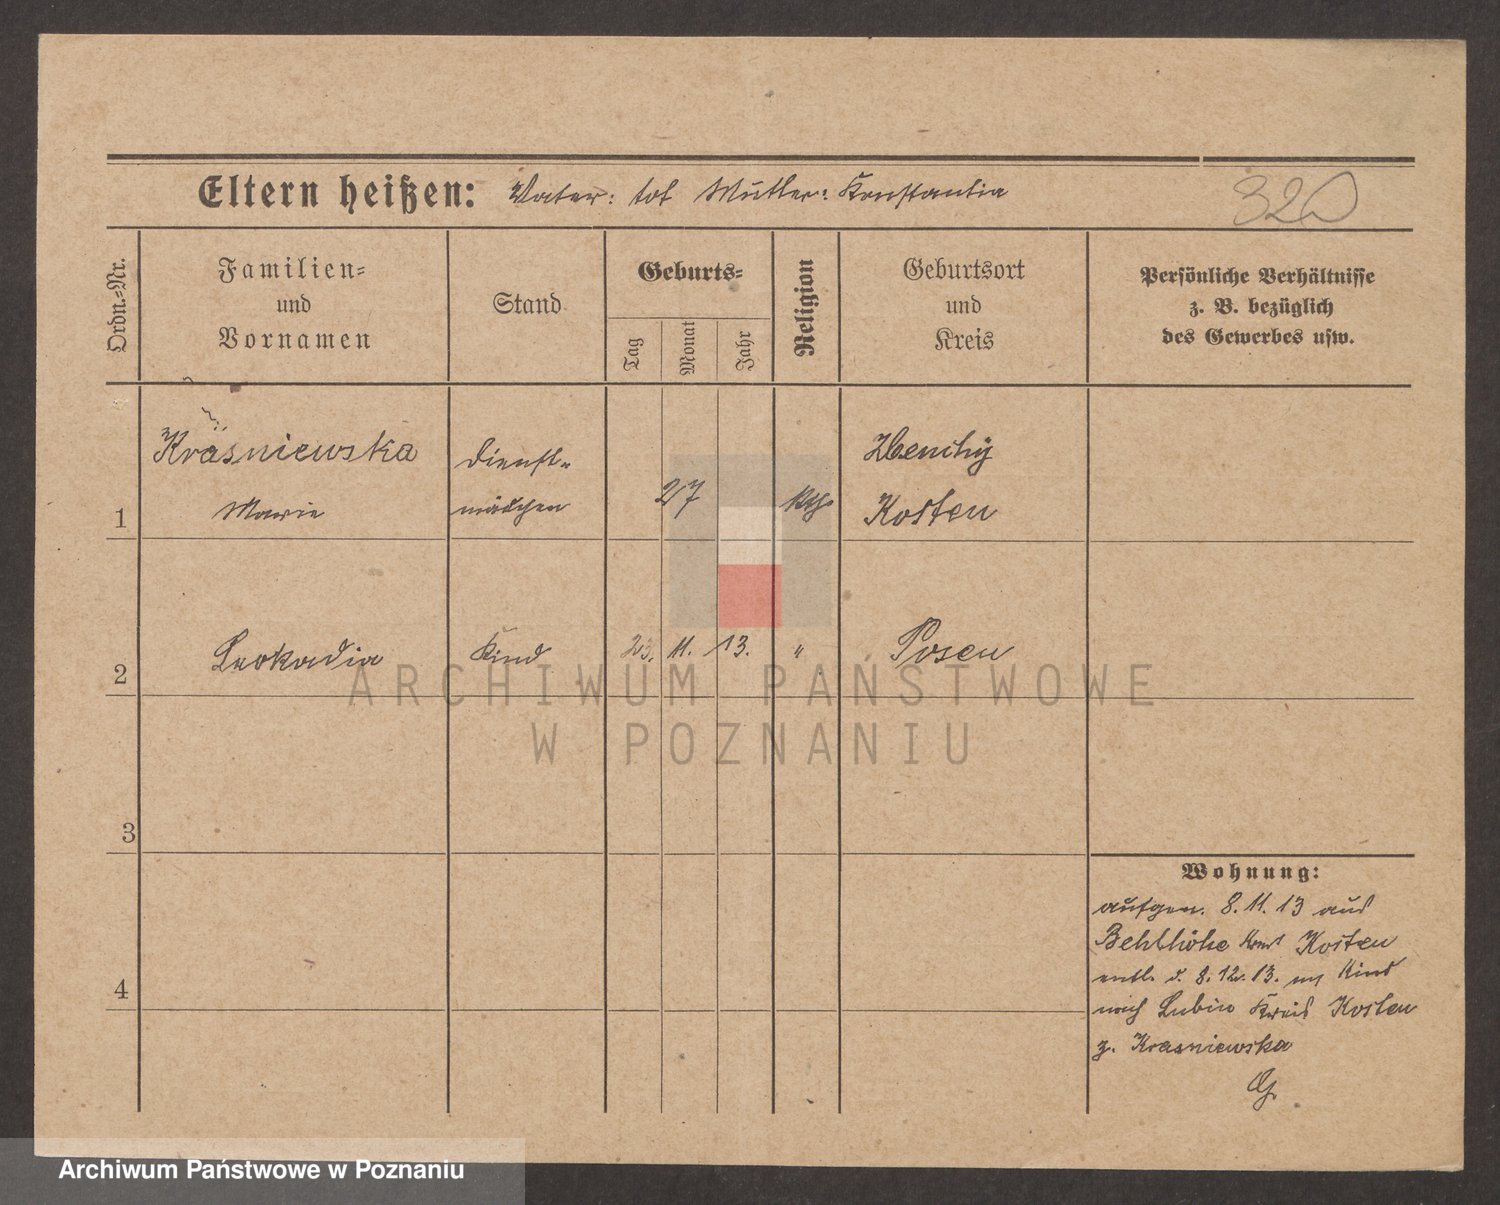 Eltern heißen: Vater: tot Mutter: Konstantia
320
Ordn.=Nr.
Familien=
und
Vornamen
Stand
Geburts=
Tag
Monat
Jahr
Religion
Geburtsort
und
Kreis
Persönliche Verhältnisse
z. B. bezüglich
des Gewerbes usw.
1
Krasniewska
Marie
Dienst=
mädchen
27
kth.
Zbenchy
Kosten
2
Leokadia
Kind
23. 11. 13.
"
Posen
3
4
Wohnung:
aufgen. 8. 11. 13 aus
Kreis Kosten
entl. d. 8. 12. 13. m Kind
nach Lubin Kreis Kosten
z. Krasniewska
ARCHIWUM PAŃSTWOWE
W POZNANIU
Archiwum Państwowe w Poznaniu